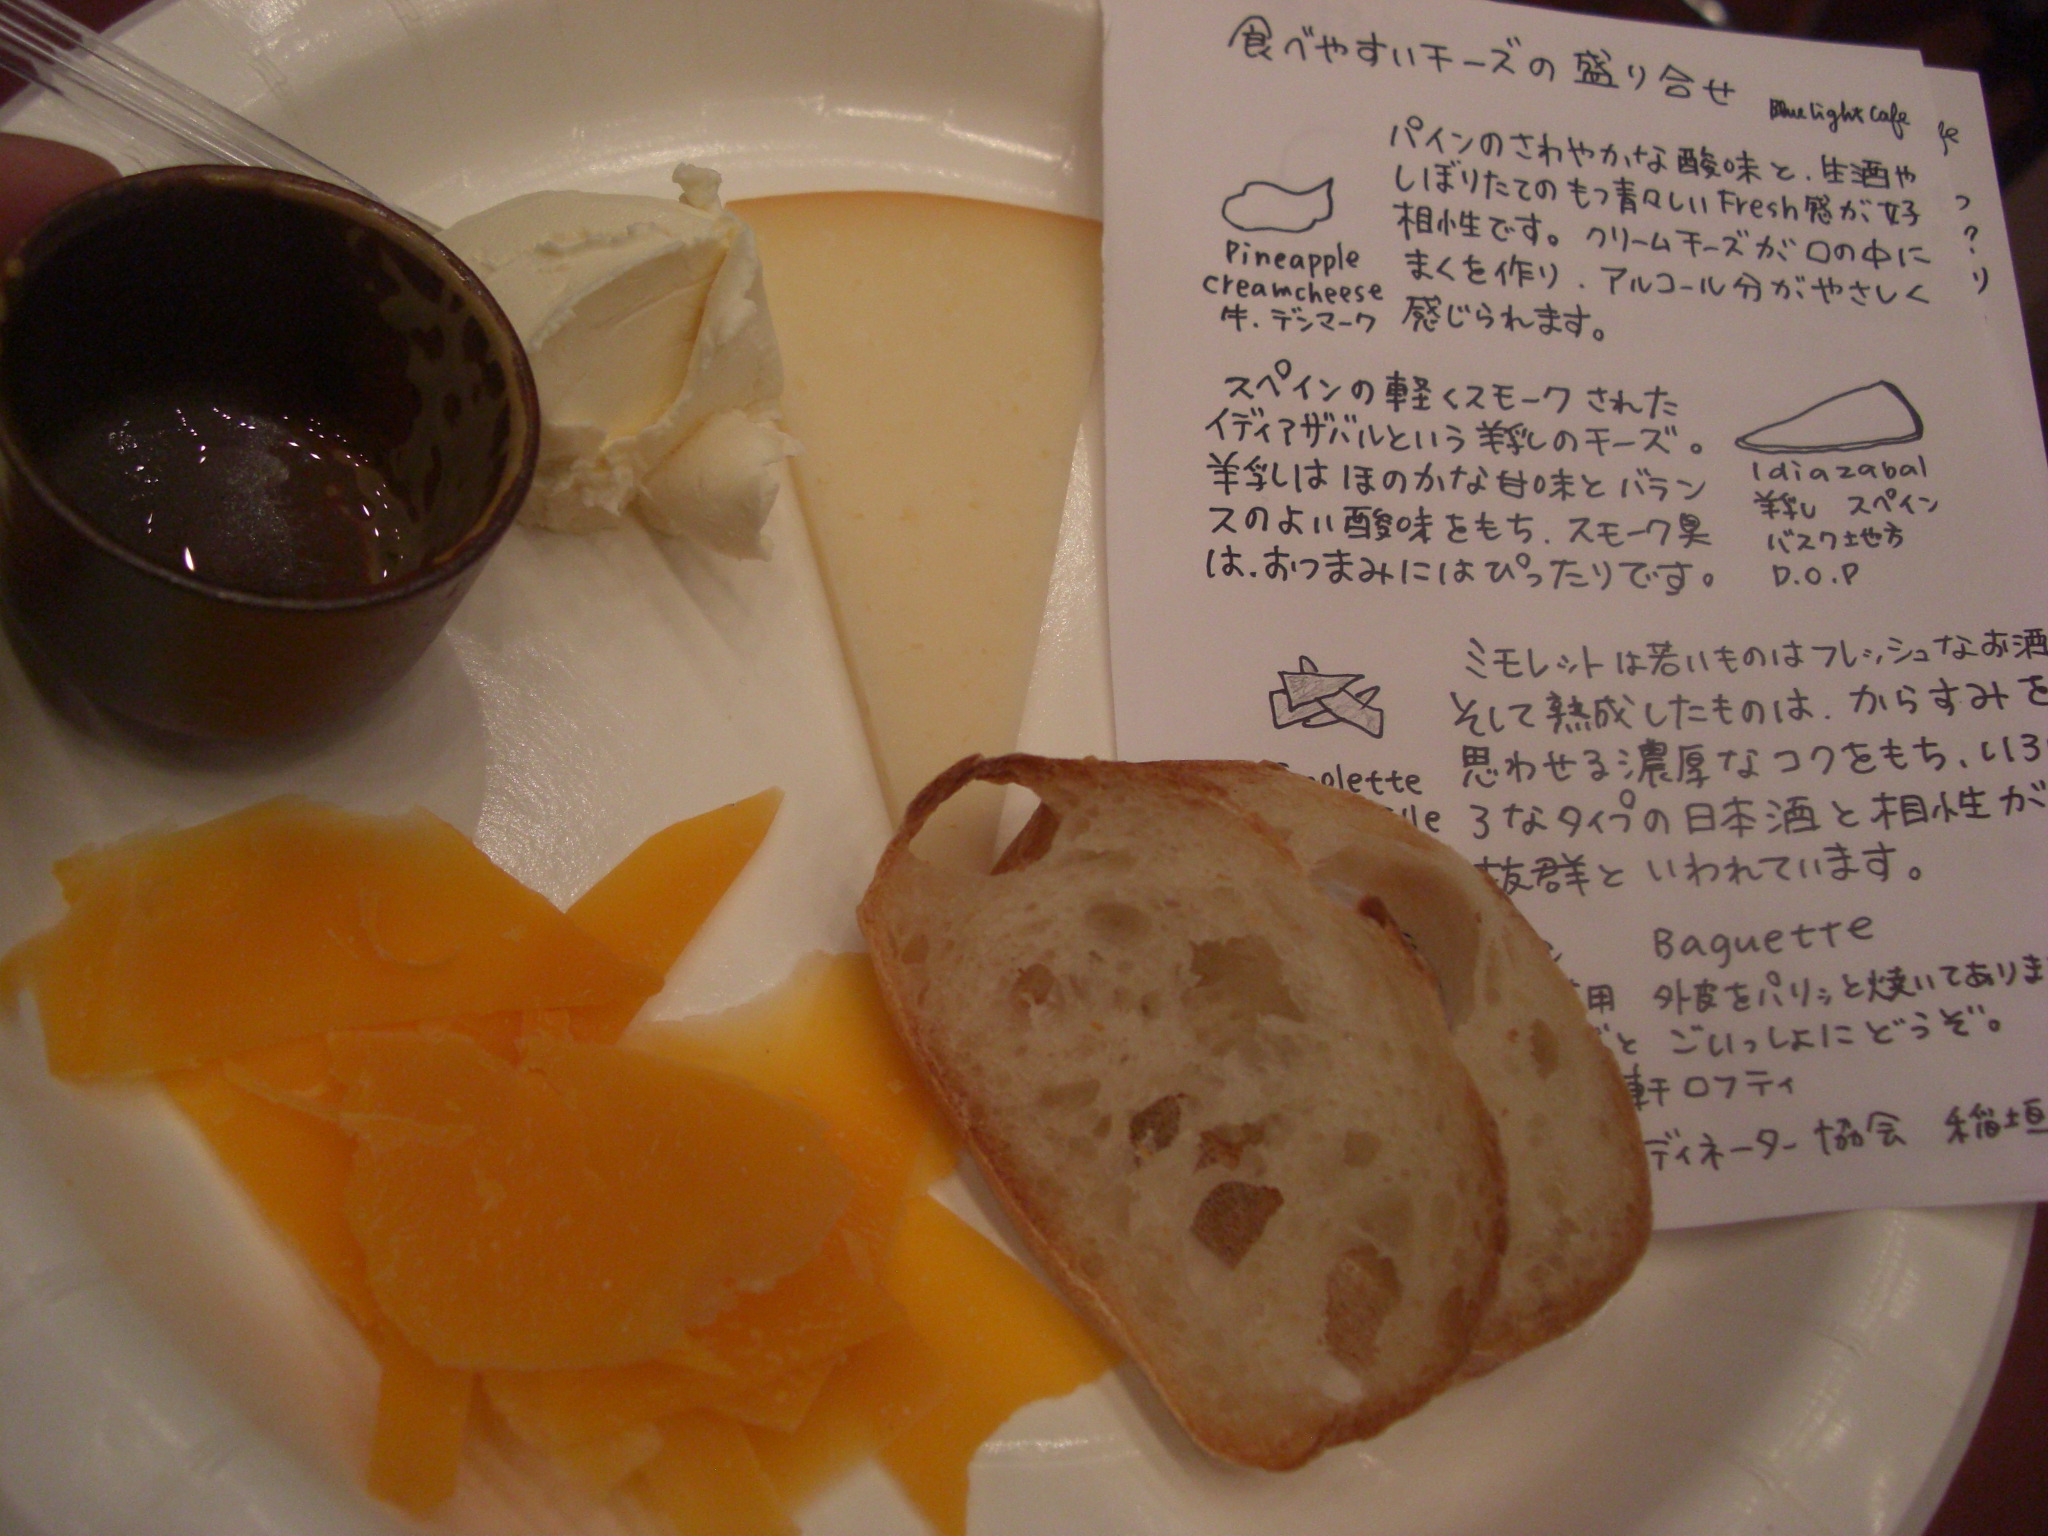 食べやすいチーズの盛り合せ
Blue Light Cafe
パインのさわやかな酸味と、生酒や
しぼりたてのもつ青々しいFresh感が好
相性です。クリームチーズが口の中に
まくを作り、アルコール分がやさしく
感じられます。
Pineapple
creamcheese
牛、デンマーク
スペインの軽くスモークされた
イディアザバルという羊乳しのチーズ。
羊乳しはほのかな甘味とバラン
スのよい酸味をもち、スモーク臭
は、おつまみにはぴったりです。
Idiazabal
羊乳し スペイン
バスク地方
D.O.P
ミモレットは若いものはフレッシュなお酒
そして熟成したものは、からすみを
思わせる濃厚なコクをもち、いろ
ろなタイプの日本酒と相性が
抜群といわれています。
olette
lle
Baguette
用 外皮をパリッと焼いてありま
と ごいっしょにどうぞ。
軒ロフティ
ディネーター協会 稲垣